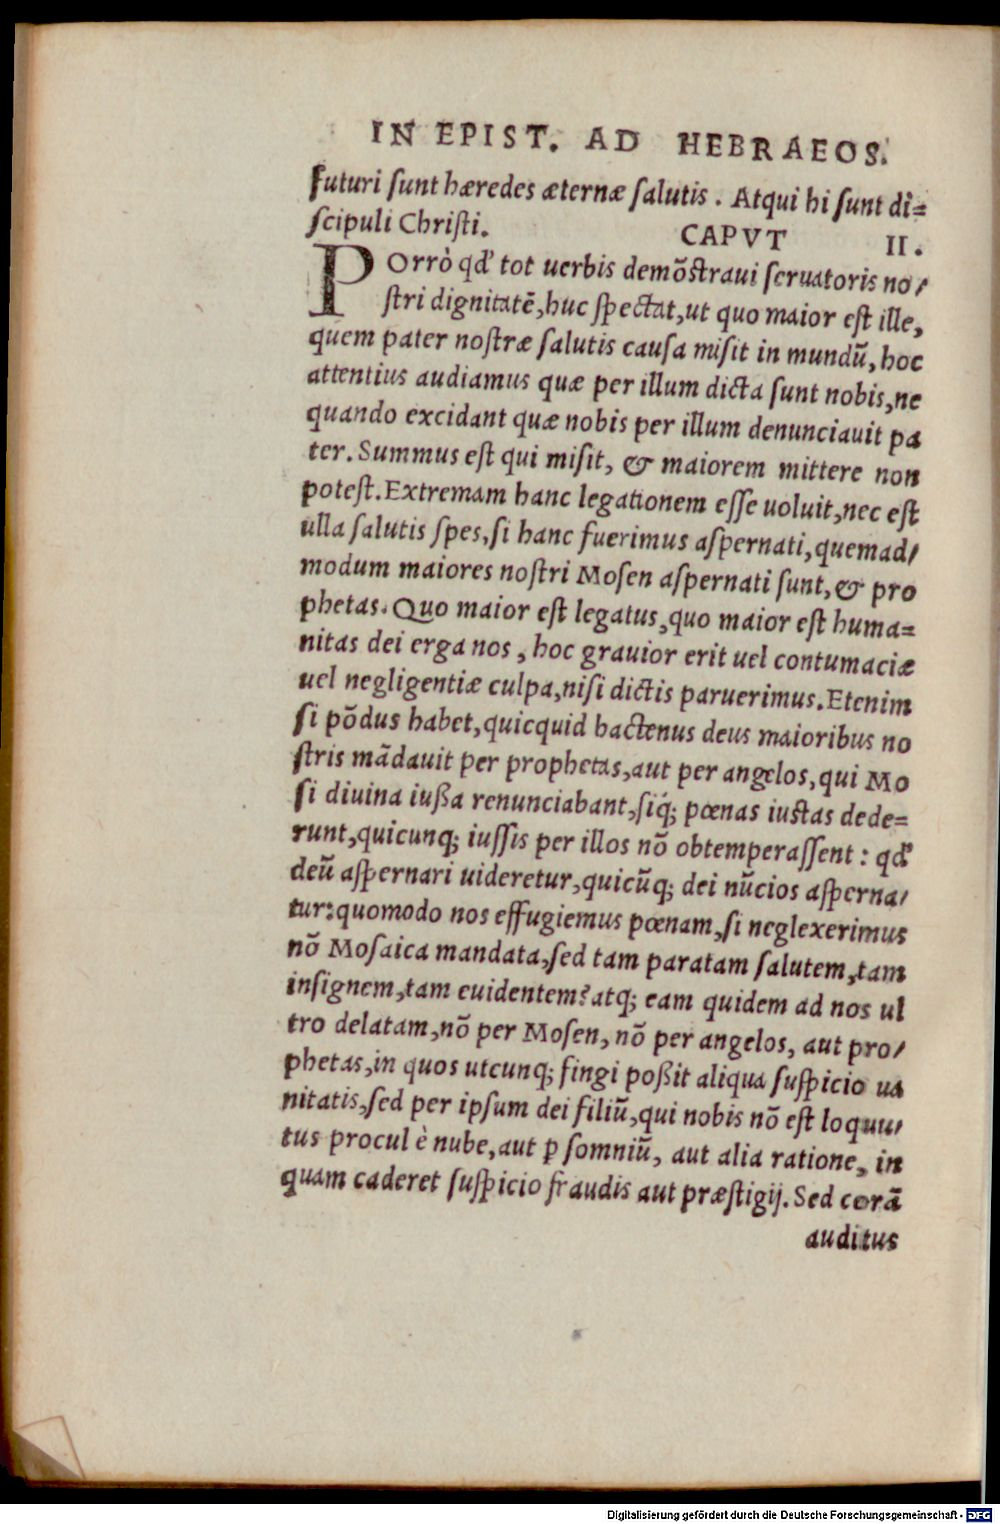 IN EPIST. AD HEBRAEOS.
futuri sunt hæredes æternæ salutis. Atqui hi sunt di=
scipuli Christi. CAPVT II.
POrrò qđ tot uerbis demõstraui seruatoris no/
stri dignitatẽ, huc spectat, ut quo maior est ille,
quem pater nostræ salutis causa misit in mundũ, hoc
attentius audiamus quæ per illum dicta sunt nobis, ne
quando excidant quæ nobis per illum denunciauit pa
ter. Summus est qui misit, & maiorem mittere non
potest. Extremam hanc legationem esse uoluit, nec est
ulla salutis spes, si hanc fuerimus aspernati, quemad/
modum maiores nostri Mosen aspernati sunt, & pro
phetas. Quo maior est legatus, quo maior est huma=
nitas dei erga nos, hoc grauior erit uel contumaciæ
uel negligentiæ culpa, nisi dictis paruerimus. Etenim
si põdus habet, quicquid hactenus deus maioribus no
stris mãdauit per prophetas, aut per angelos, qui Mo
si diuina iußa renunciabant, siq́; pœnas iustas dede=
runt, quicunq; iussis per illos nõ obtemperassent: qđ
deũ aspernari uideretur, quicũq; dei nũcios asperna/
tur: quomodo nos effugiemus pœnam, si neglexerimus
nõ Mosaica mandata, sed tam paratam salutem, tam
insignem, tam euidentem? atq; eam quidem ad nos ul
tro delatam, nõ per Mosen, nõ per angelos, aut pro/
phetas, in quos utcunq; fingi poßit aliqua suspicio ua
nitatis, sed per ipsum dei filiũ, qui nobis nõ est loquu/
tus procul è nube, aut ꝑ somniũ, aut alia ratione, in
quam caderet suspicio fraudis aut præstigij. Sed corã
auditus
Digitalisierung gefördert durch die Deutsche Forschungsgemeinschaft - DFG